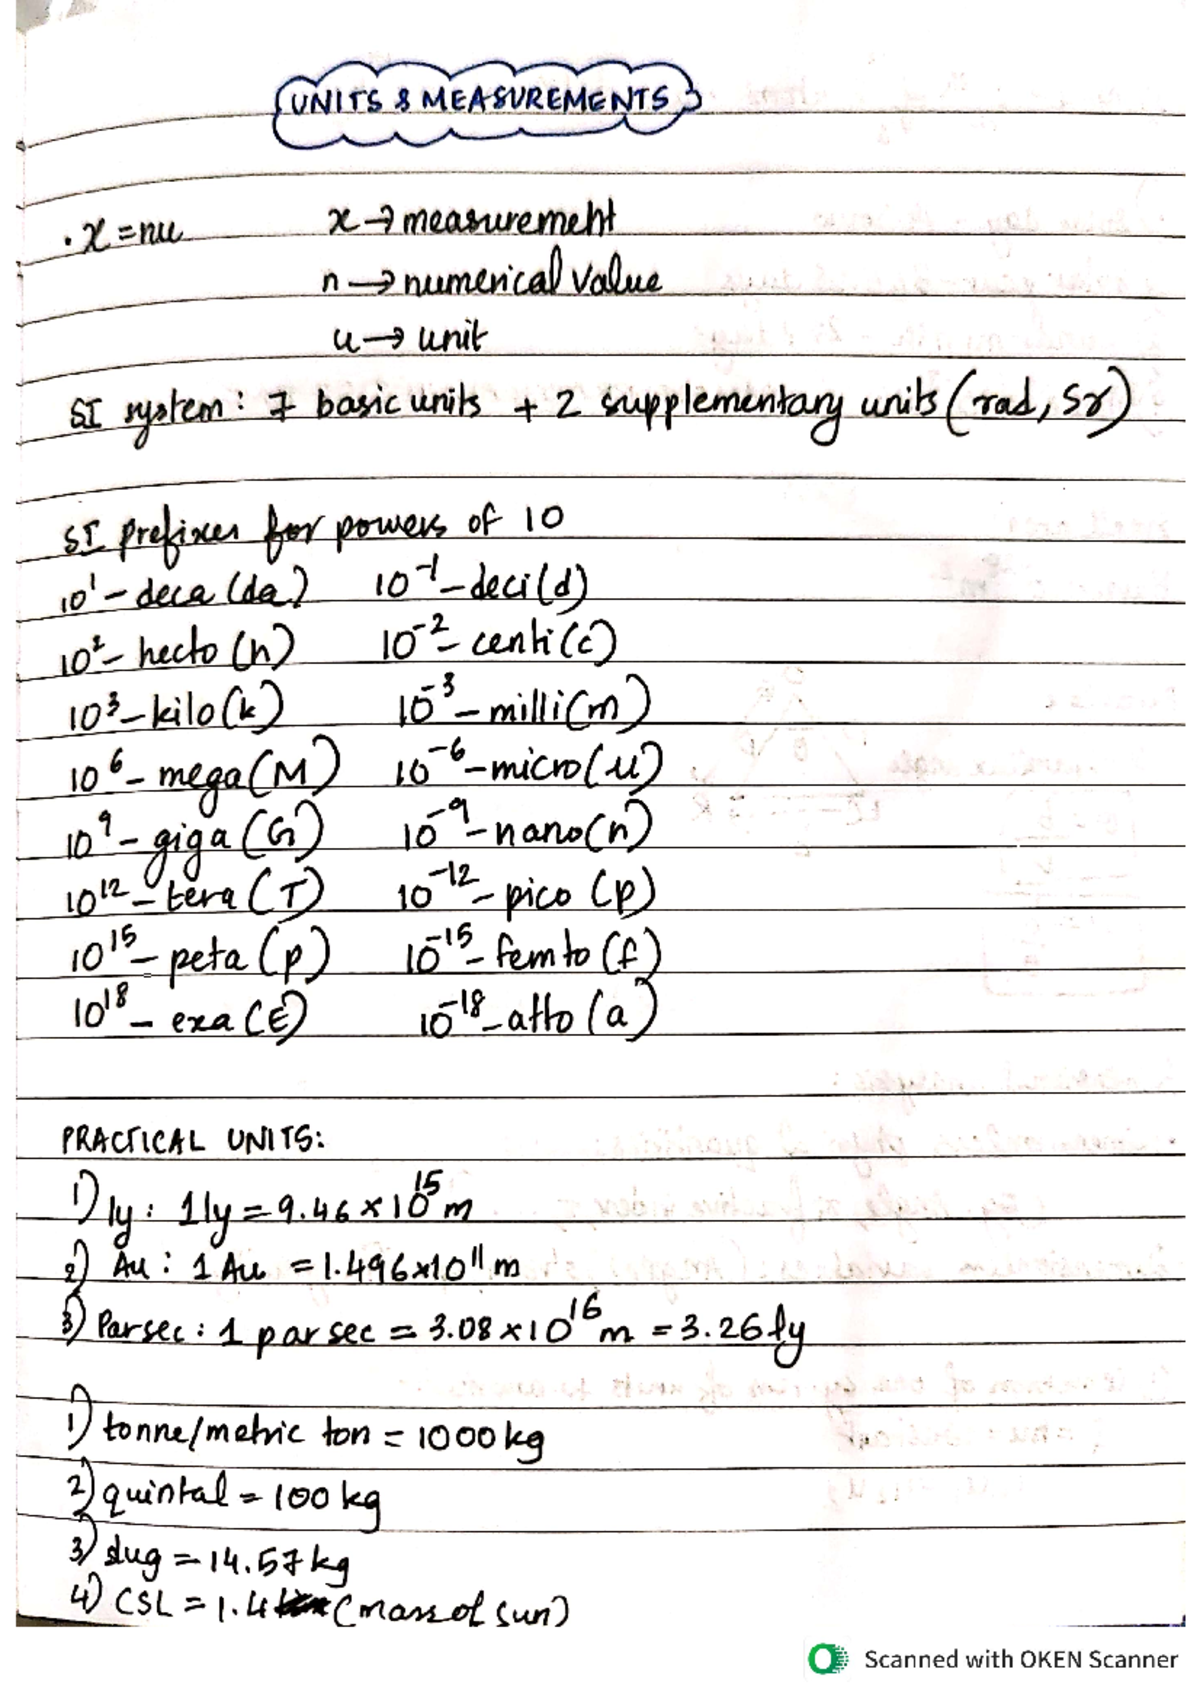 UNITS & MEASUREMENTS
. x = nu x → measurement
n → numerical value
u → unit
SI system: 7 basic units + 2 supplementary units (rad, sr)
SI prefixes for powers of 10
10¹ – deca (da) 10⁻¹ – deci (d)
10² – hecto (h) 10⁻² – centi (c)
10³ – kilo (k) 10⁻³ – milli (m)
10⁶ – mega (M) 10⁻⁶ – micro (u)
10⁹ – giga (G) 10⁻⁹ – nano (n)
10¹² – tera (T) 10⁻¹² – pico (p)
10¹⁵ – peta (p) 10⁻¹⁵ – femto (f)
10¹⁸ – exa (E) 10⁻¹⁸ – atto (a)
PRACTICAL UNITS:
1) ly : 1 ly = 9.46 × 10¹⁵ m
2) Au : 1 Au = 1.496×10¹¹ m
3) Parsec : 1 parsec = 3.08 × 10¹⁶ m = 3.26 ly
1) tonne/metric ton = 1000 kg
2) quintal = 100 kg
3) slug = 14.57 kg
4) CSL = 1.4 (mass of sun)
Scanned with OKEN Scanner